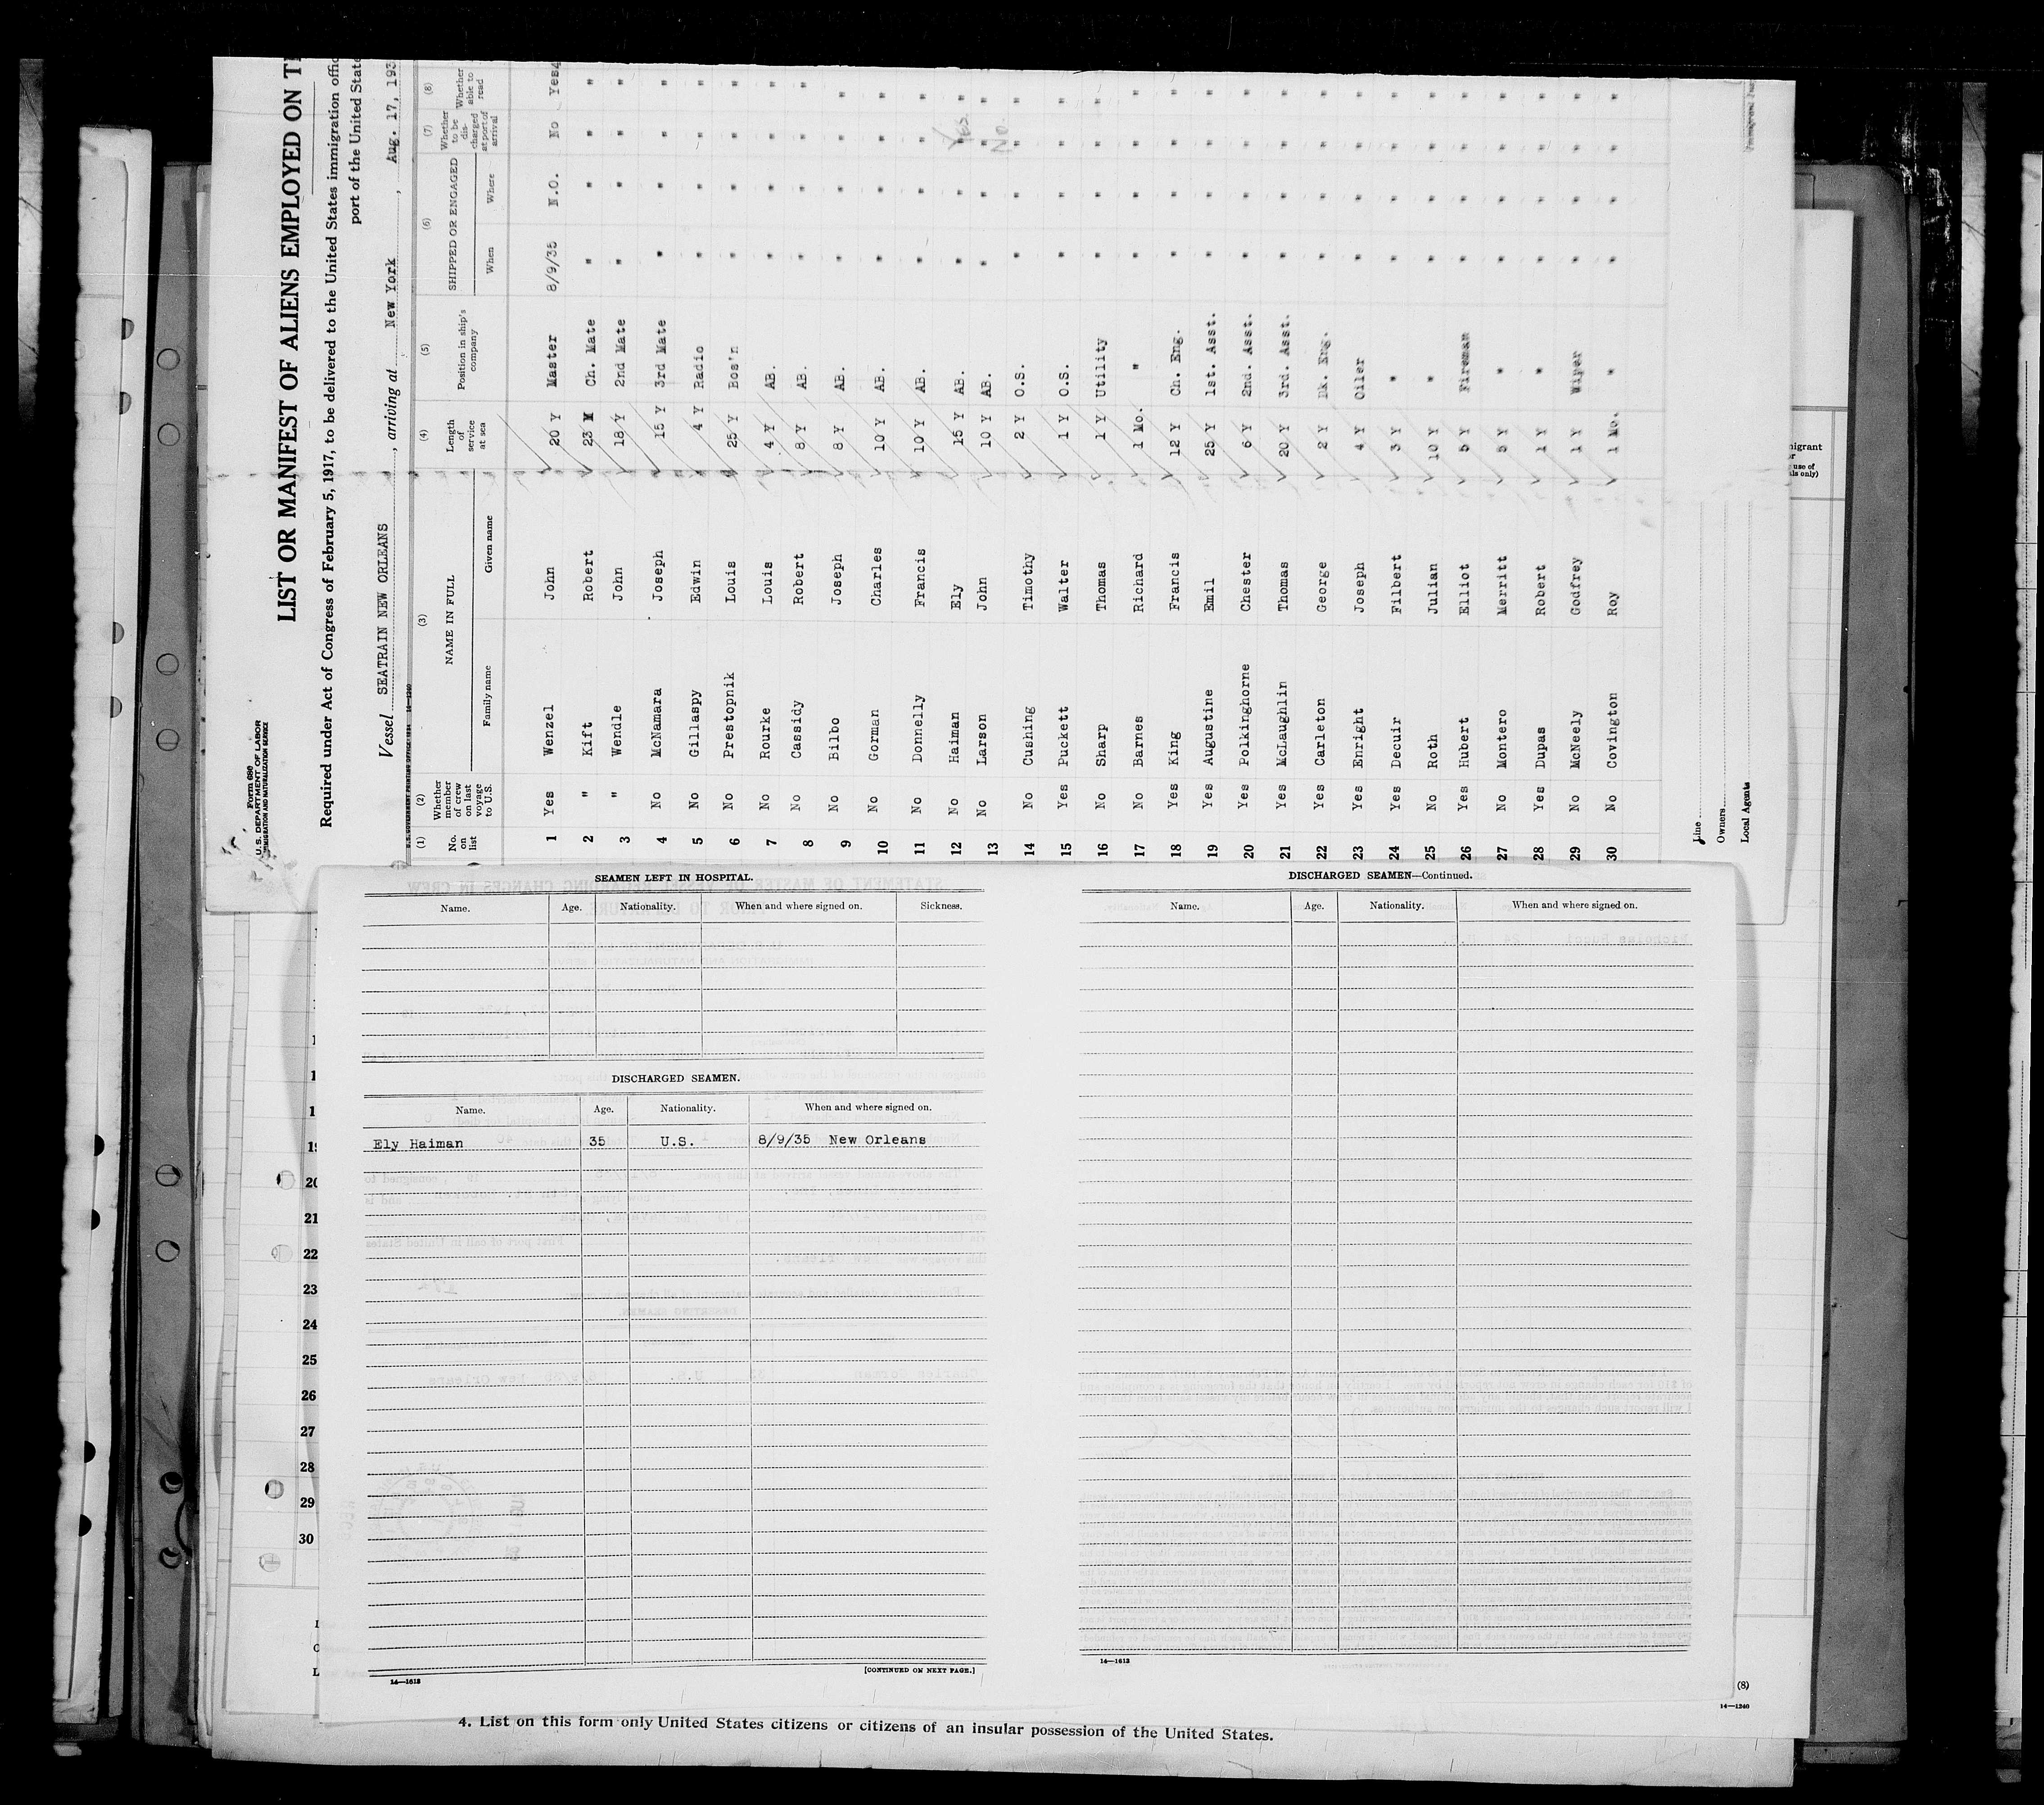 Form 680
U. S. DEPARTMENT OF LABOR
IMMIGRATION AND NATURALIZATION SERVICE
LIST OR MANIFEST OF ALIENS EMPLOYED ON
Required under Act of Congress of February 5, 1917, to be delivered to the United States immigration
port of the United
Vessel SEATRAIN NEW ORLEANS, arriving at New York, Aug. 17, 193
(1) (2) (3) (4) (5) (6) (7) (8)
No. on list Whether member of crew on last voyage to U.S. NAME IN FULL Family name Given name Length of service at sea Position in ship's company SHIPPED OR ENGAGED When Where Whether to be discharged at port of arrival Whether able to read
1 Yes Wenzel John 20 Y Master 8/9/35 N.O. No Yes
2 " Kift Robert 23 Ch. Mate " " " "
3 " Wendle John 18 Y 2nd Mate " " " "
4 No McNamara Joseph 15 Y 3rd Mate " " " "
5 No Gillaspy Edwin 4 Y Radio " " " "
6 No Prestopnik Louis 25 Y Bos'n " " " "
7 No Rourke Louis 4 Y AB. " " " "
8 No Cassidy Robert 8 Y AB. " " " "
9 No Bilbo Joseph 8 Y AB. " " " "
10 No Gorman Charles 10 Y AB. " " " "
11 No Donnelly Francis 10 Y AB. " " " "
12 No Haiman Ely 15 Y AB. " " Yes "
13 No Larson John 10 Y AB. " " No "
14 No Cushing Timothy 2 Y O.S. " " " "
15 Yes Puckett Walter 1 Y O.S. " " " "
16 No Sharp Thomas 1 Y Utility " " " "
17 No Barnes Richard 1 Mo. " " " " "
18 Yes King Francis 12 Y Ch. Eng. " " " "
19 Yes Augustine Emil 25 Y 1st. Asst. " " " "
20 Yes Polkinghorne Chester 6 Y 2nd. Asst. " " " "
21 Yes McLaughlin Thomas 20 Y 3rd. Asst. " " " "
22 Yes Carleton George 2 Y Dk. Eng. " " " "
23 Yes Enright Joseph 4 Y Oiler " " " "
24 Yes Decuir Filbert 3 Y " " " " "
25 No Roth Julian 10 Y " " " " "
26 Yes Hubert Elliot 5 Y Fireman " " " "
27 No Montero Merritt 5 Y " " " " "
28 Yes Dupas Robert 1 Y " " " " "
29 No McNeely Godfrey 1 Y Wiper " " " "
30 No Covington Roy 1 Mo. " " " " "
Line
Owners
Local Agents
SEAMEN LEFT IN HOSPITAL.
Name. Age. Nationality. When and where signed on. Sickness.
DISCHARGED SEAMEN.
Name. Age. Nationality. When and where signed on.
Ely Haiman 35 U.S. 8/9/35 New Orleans
14—1613
[CONTINUED ON NEXT PAGE.]
DISCHARGED SEAMEN—Continued.
Name. Age. Nationality. When and where signed on.
14—1613
20
21
22
23
24
25
26
27
28
29
30
(8)
14—1240
4. List on this form only United States citizens or citizens of an insular possession of the United States.